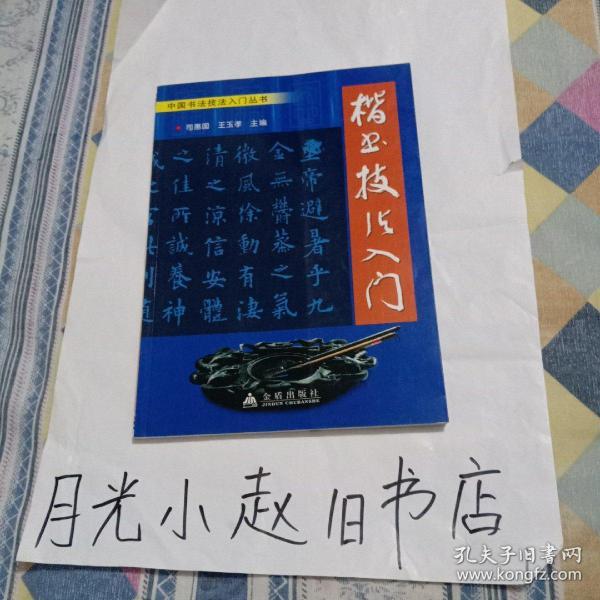 中国书法技法入门丛书
司惠国 王玉孝 主编
楷书技法入门
皇帝避暑乎九
金無欝蒸之氣
微風徐動有淒
清之涼信安體
之佳所誠養神
金盾出版社
JINDUN CHUBANSHE
月光小赵旧书店
孔夫子旧書网
www.kongfz.com